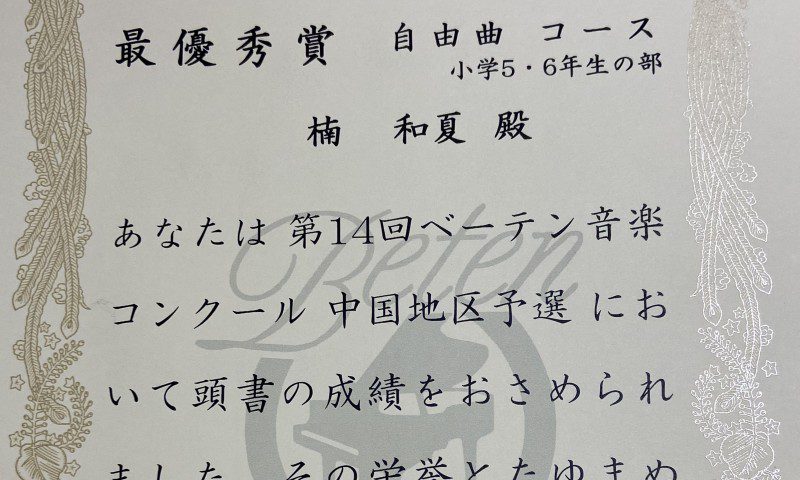 最優秀賞 自由曲 コース
小学5・6年生の部
楠 和夏 殿
あなたは 第14回ベーテン音楽
コンクール 中国地区予選 にお
いて頭書の成績をおさめられ
ました その栄誉とたゆまぬ
Beten